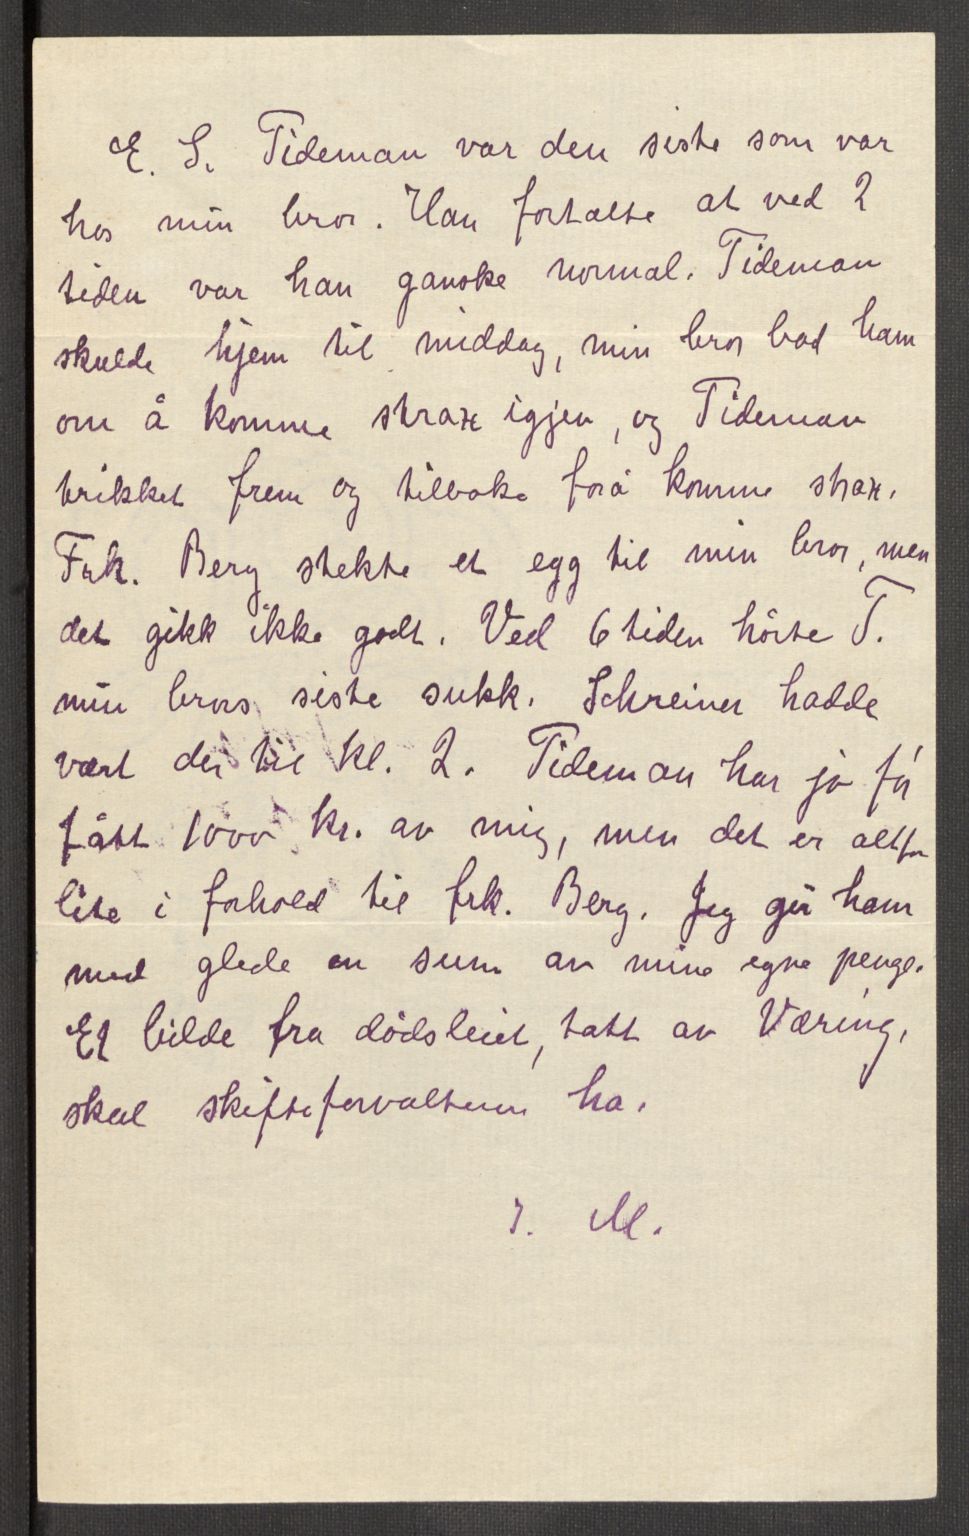 E. S. Tideman var den siste som var
hos min bror. Han fortalte at ved 2
tiden var han ganske normal. Tideman
skulde hjem til middag, min bror bad ham
om å komme strax igjen, og Tideman
trikket frem og tilbake forå komme strax.
Frk. Berg stekte et egg til min bror, men
det gikk ikke godt. Ved 6 tiden hörte T.
min brors siste sukk. Schreiner hadde
vært der til kl. 2. Tideman har jo får
fått 1000 kr. av mig, men det er altfor
lite i forhold til frk. Berg. Jeg gir ham
med glede en sum av mine egne penge.
Et bilde fra dödsleiet, tatt av Væring,
skal skifteforvalteren ha.
I. M.